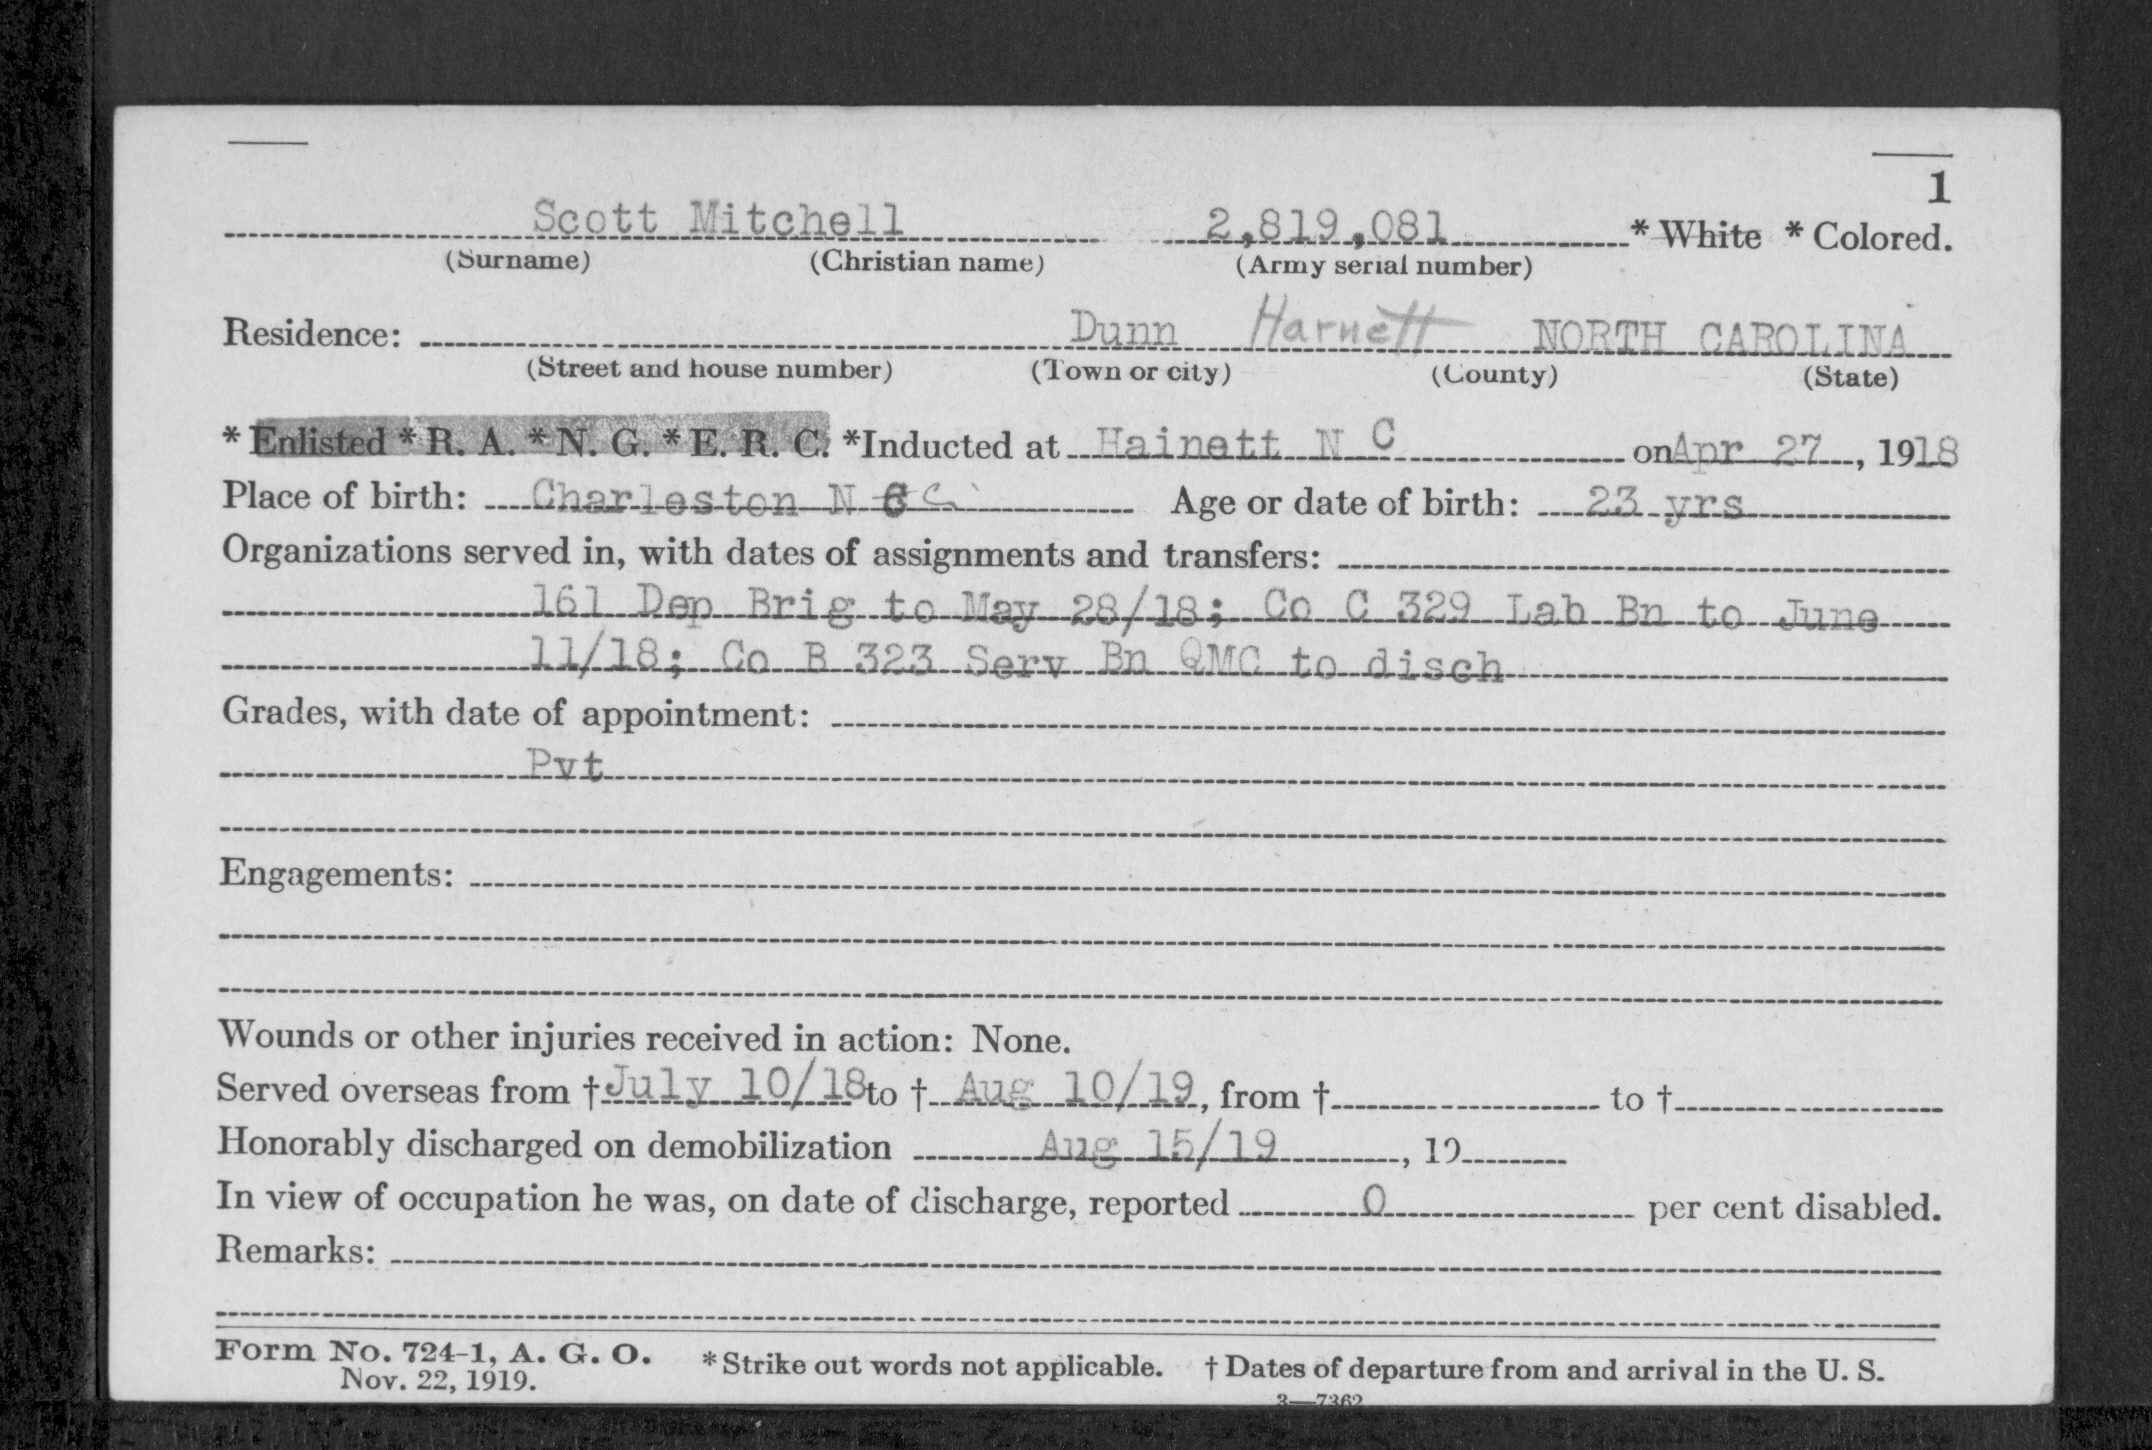 1
Scott Mitchell 2,819,081 * White * Colored.
(Surname) (Christian name) (Army serial number)
Residence: Dunn Harnett NORTH CAROLINA
(Street and house number) (Town or city) (County) (State)
* Enlisted * R. A. * N. G. * E. R. C. *Inducted at Hainett N C on Apr 27, 1918
Place of birth: Charleston N C C Age or date of birth: 23 yrs
Organizations served in, with dates of assignments and transfers:
161 Dep Brig to May 28/18; Co C 329 Lab Bn to June
11/18; Co B 323 Serv Bn QMC to disch
Grades, with date of appointment:
Pvt
Engagements:
Wounds or other injuries received in action: None.
Served overseas from † July 10/18 to † Aug 10/19, from † to †
Honorably discharged on demobilization Aug 15/19, 19
In view of occupation he was, on date of discharge, reported 0 per cent disabled.
Remarks:
Form No. 724-1, A. G. O. * Strike out words not applicable. † Dates of departure from and arrival in the U. S.
Nov. 22, 1919.
3—7362